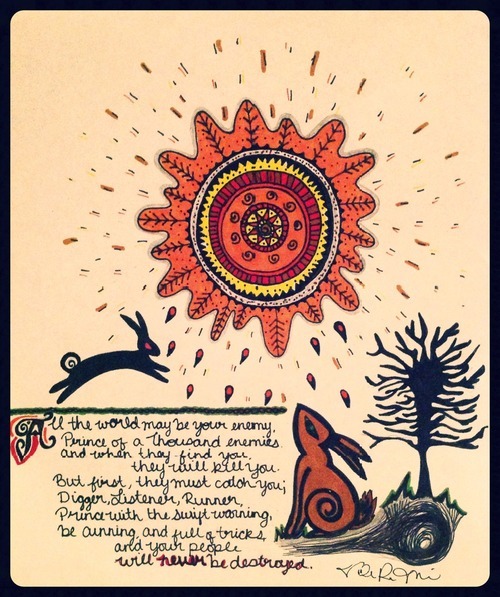 All the world may be your enemy,
Prince of a Thousand enemies.
and when they find you,
they will kill you.
But first, they must catch you;
Digger, Listener, Runner,
Prince with the swift warning,
be cunning, and full of tricks,
and your people
will never be destroyed.